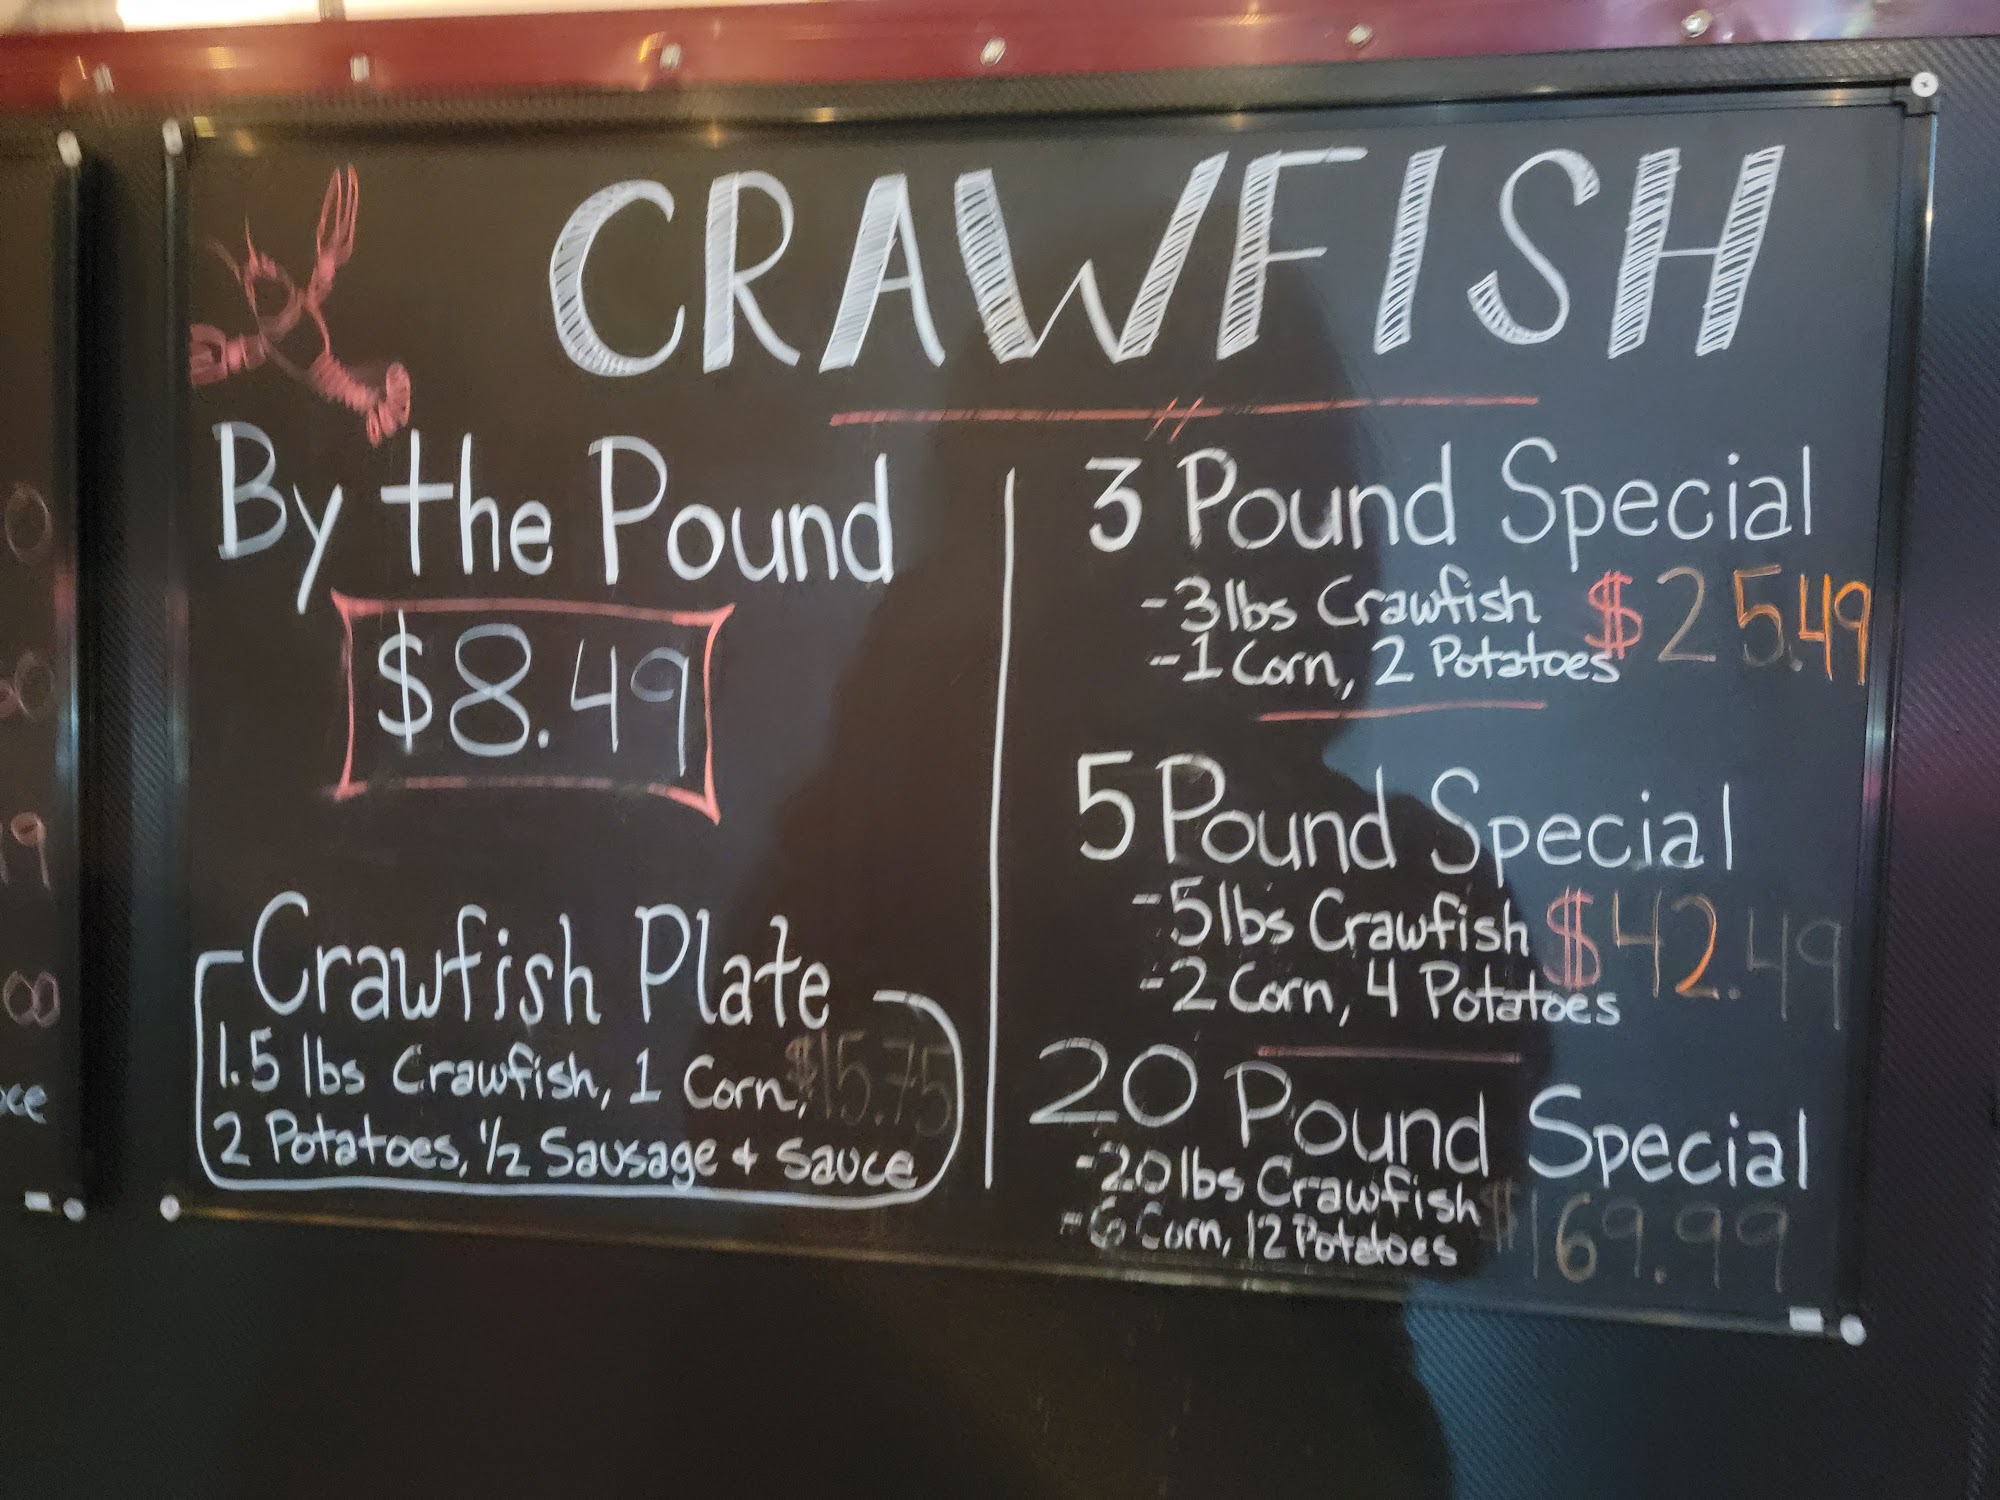 CRAWFISH
By the Pound
$8.49
Crawfish Plate
1.5 lbs Crawfish, 1 Corn, $15.75
2 Potatoes, 1/2 Sausage + Sauce
3 Pound Special
-3lbs Crawfish $25.49
-1 Corn, 2 Potatoes
5 Pound Special
-5lbs Crawfish $42.49
-2 Corn, 4 Potatoes
20 Pound Special
-20lbs Crawfish $169.99
-6 Corn, 12 Potatoes